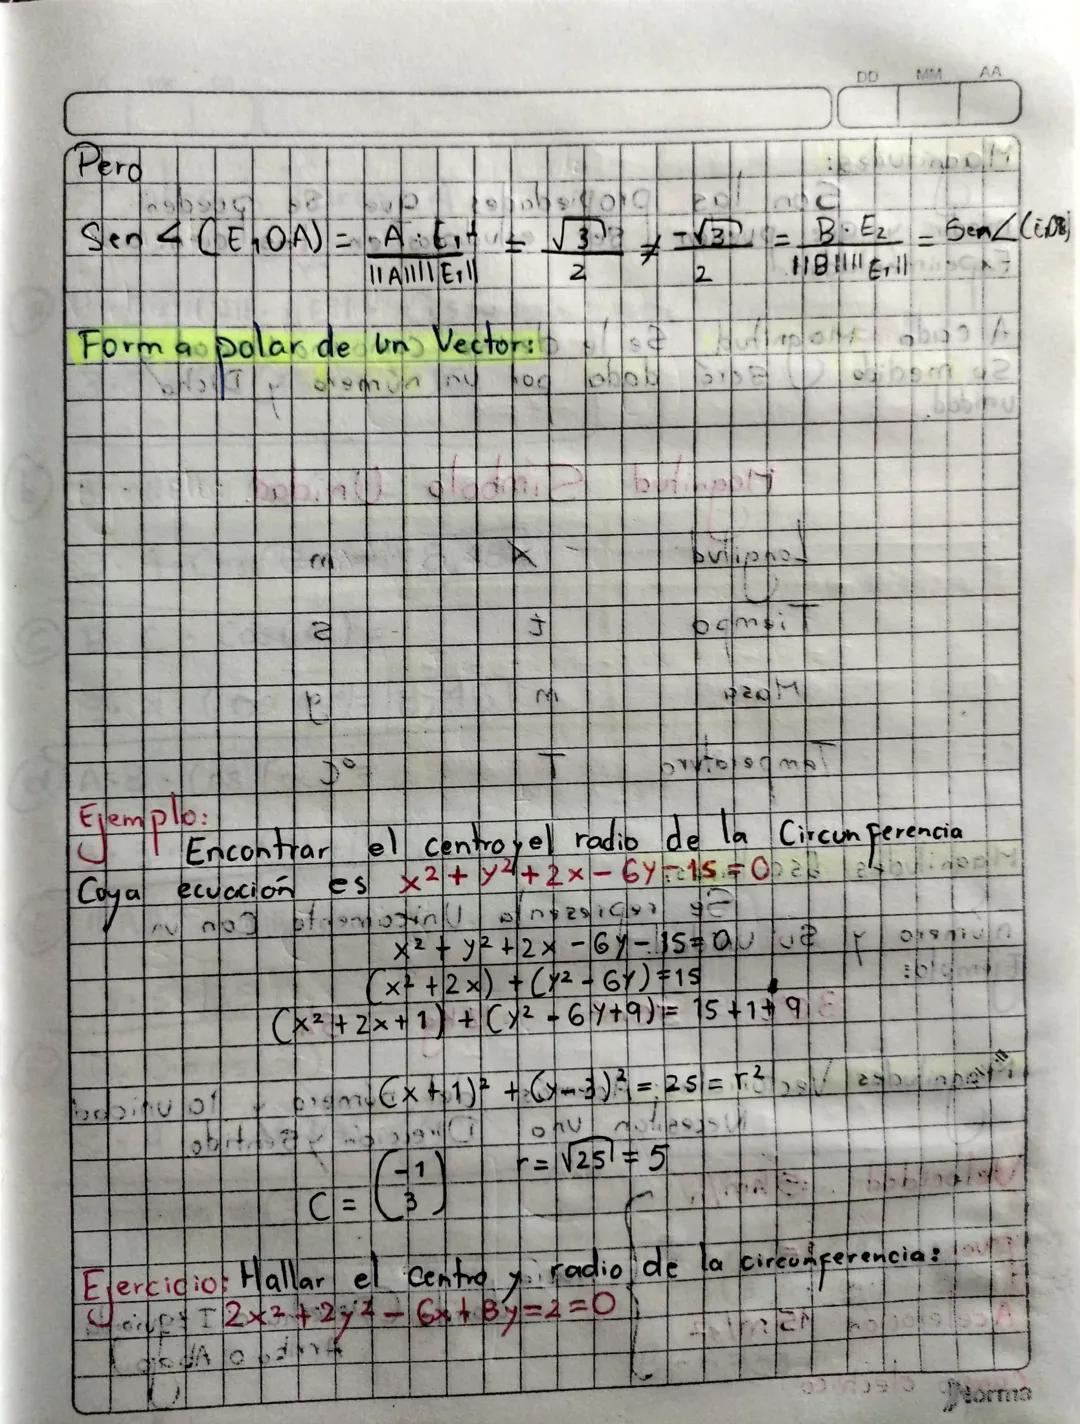 DD MM AA
Pero
Sen ∢ (E₁OA) = A·E₁/||A||||E₁|| = √3/2 ≠ -√3/2 = B·E₂/||B||||E₁|| = Sen∠(E₁OB)
Forma polar de un Vector:
Ejemplo:
Encontrar el centro y el radio de la Circunferencia
Coya ecuación es x² + y² + 2x - 6y - 15 = 0
x² + y² + 2x - 6y - 15 = 0
(x² + 2x) + (y² - 6y) = 15
(x² + 2x + 1) + (y² - 6y + 9) = 15 + 1 + 9
(x + 1)² + (y - 3)² = 25 = r²
C = (-1 3) r = √25 = 5
Ejercicio: Hallar el centro y radio de la circunferencia:
2x² + 2y² - 6x + 8y = 2 = 0
Norma